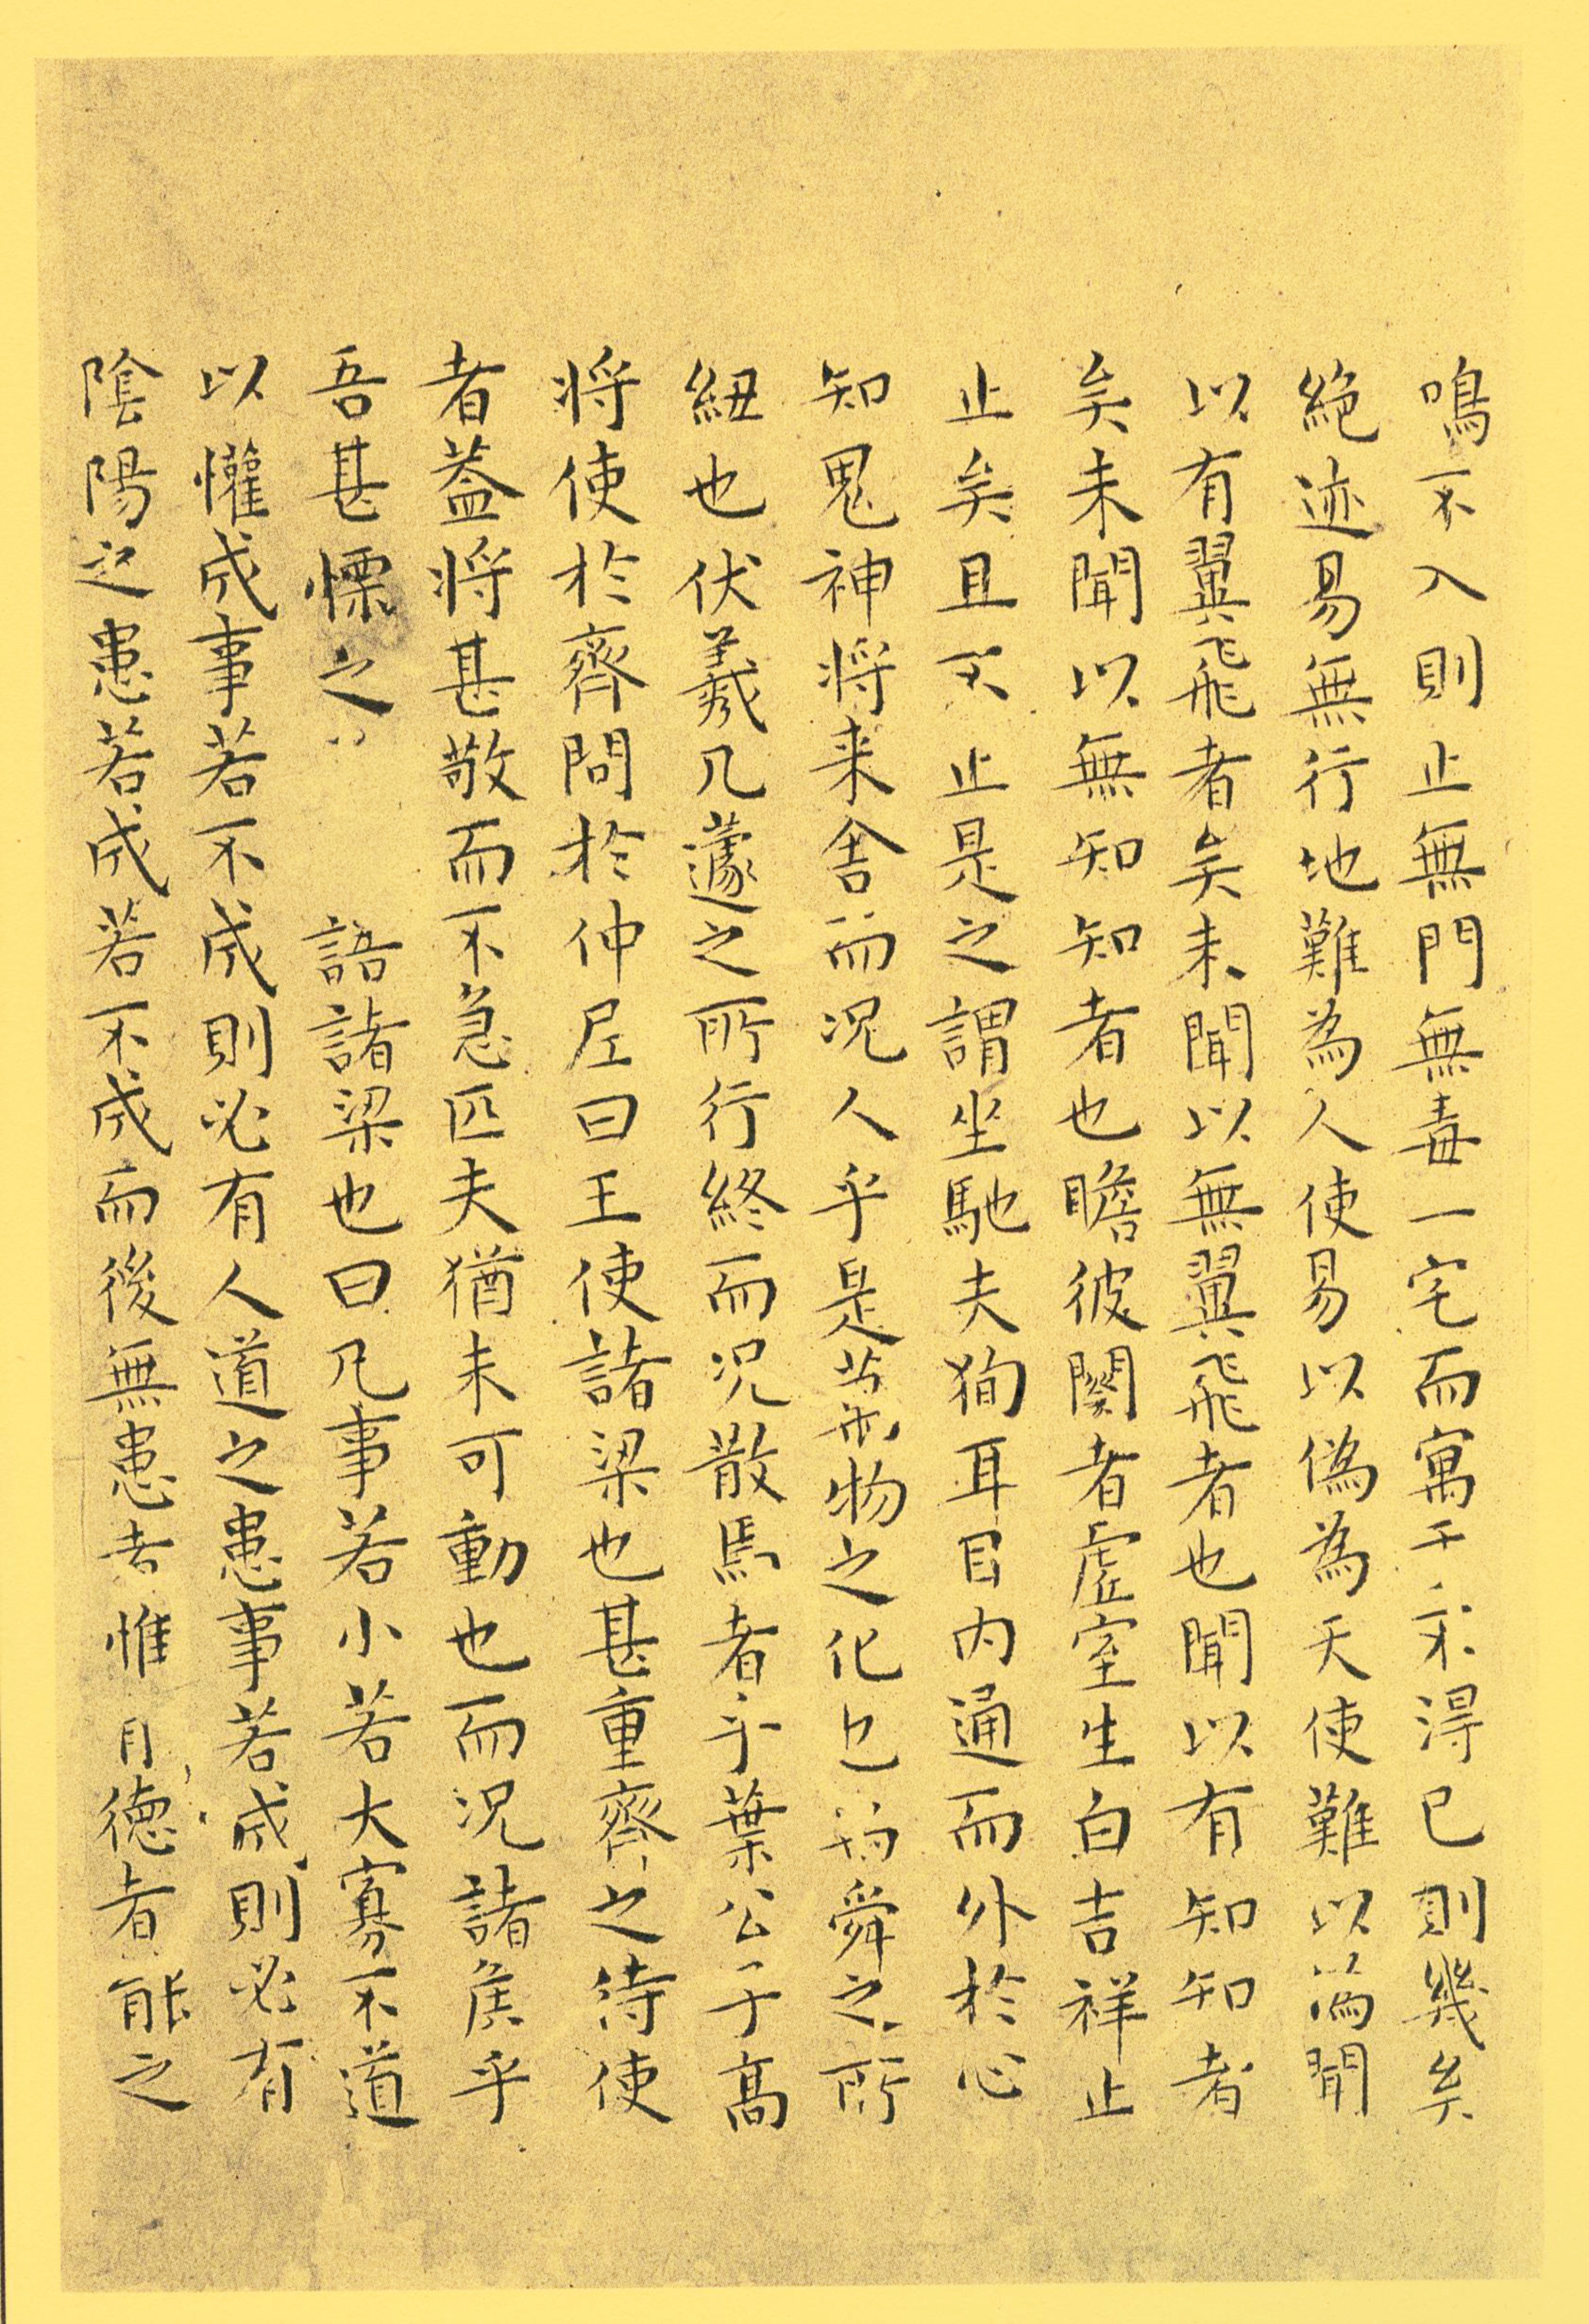 鳴不入則止無門無毒一宅而寓于不得已則幾矣
絕迹易無行地難為人使易以偽為天使難以偽聞
以有翼飛者矣未聞以無翼飛者也聞以有知知者
矣未聞以無知知者也瞻彼闋者虛室生白吉祥止
止矣且不止是之謂坐馳夫狥耳目內通而外於心
知鬼神將來舍而況人乎是萬物之化也舜之所
紐也伏羲几蘧之所行終而況散焉者乎葉公子高
將使於齊問於仲尼曰王使諸梁也甚重齊之待使
者蓋將甚敬而不急匹夫猶未可動也而況諸侯乎
吾甚慄之語諸梁也曰凡事若小若大寡不道
以懽成事若不成則必有人道之患事若成則必有
陰陽之患若成若不成而後無患者惟有德者能之